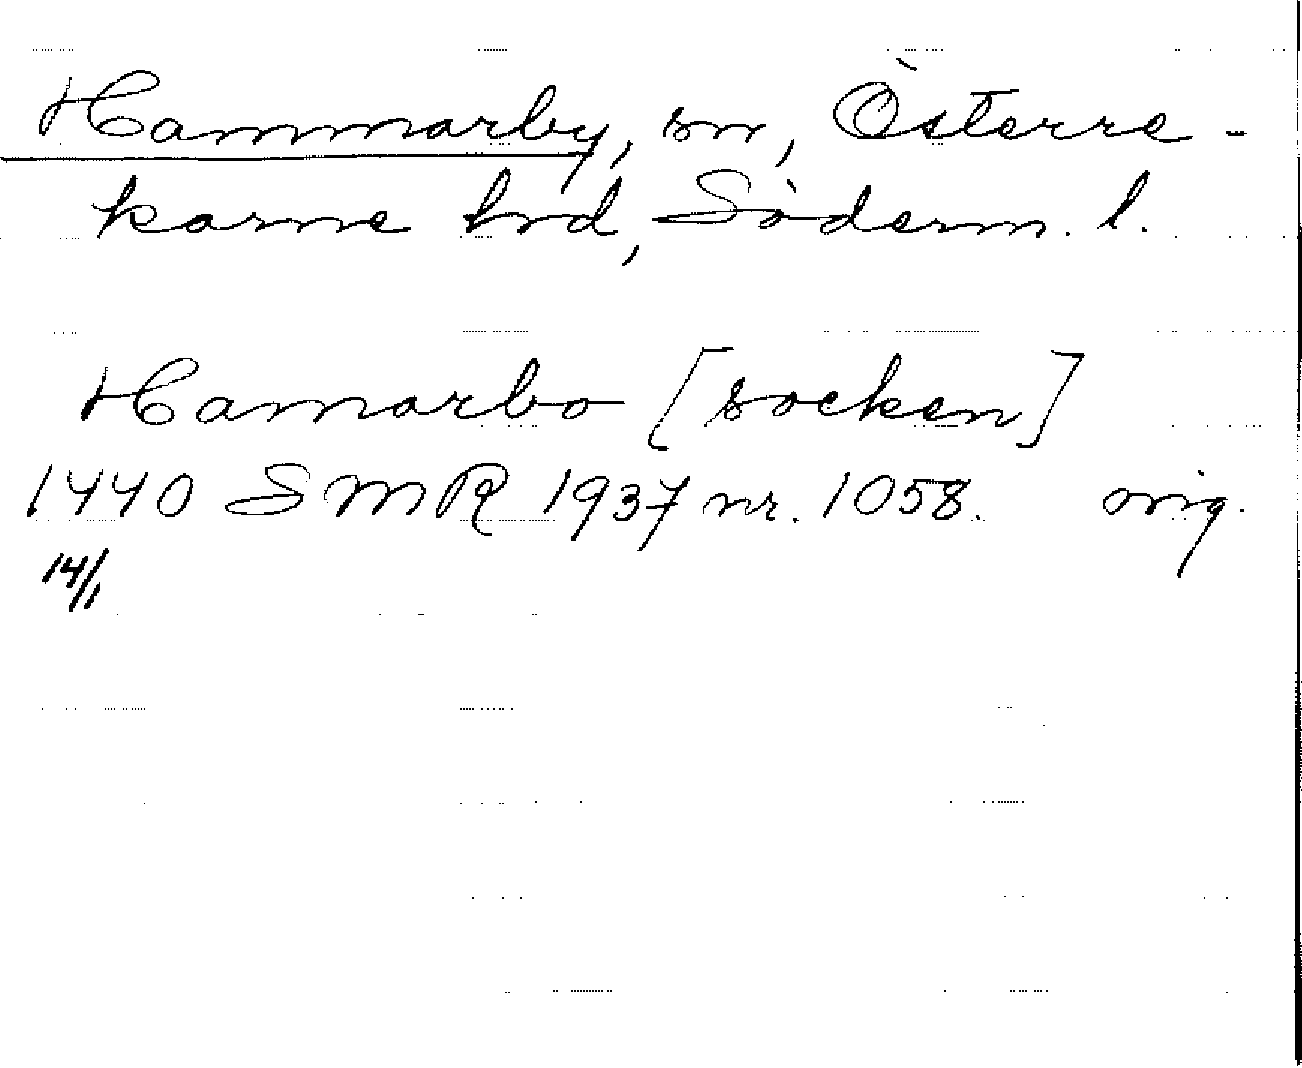 Hammarby, sn, Österre-
karne hrd, Söderm. l.
Hamarbo [socken]
1440 SMR 1937 nr. 1058. orig.
14/1